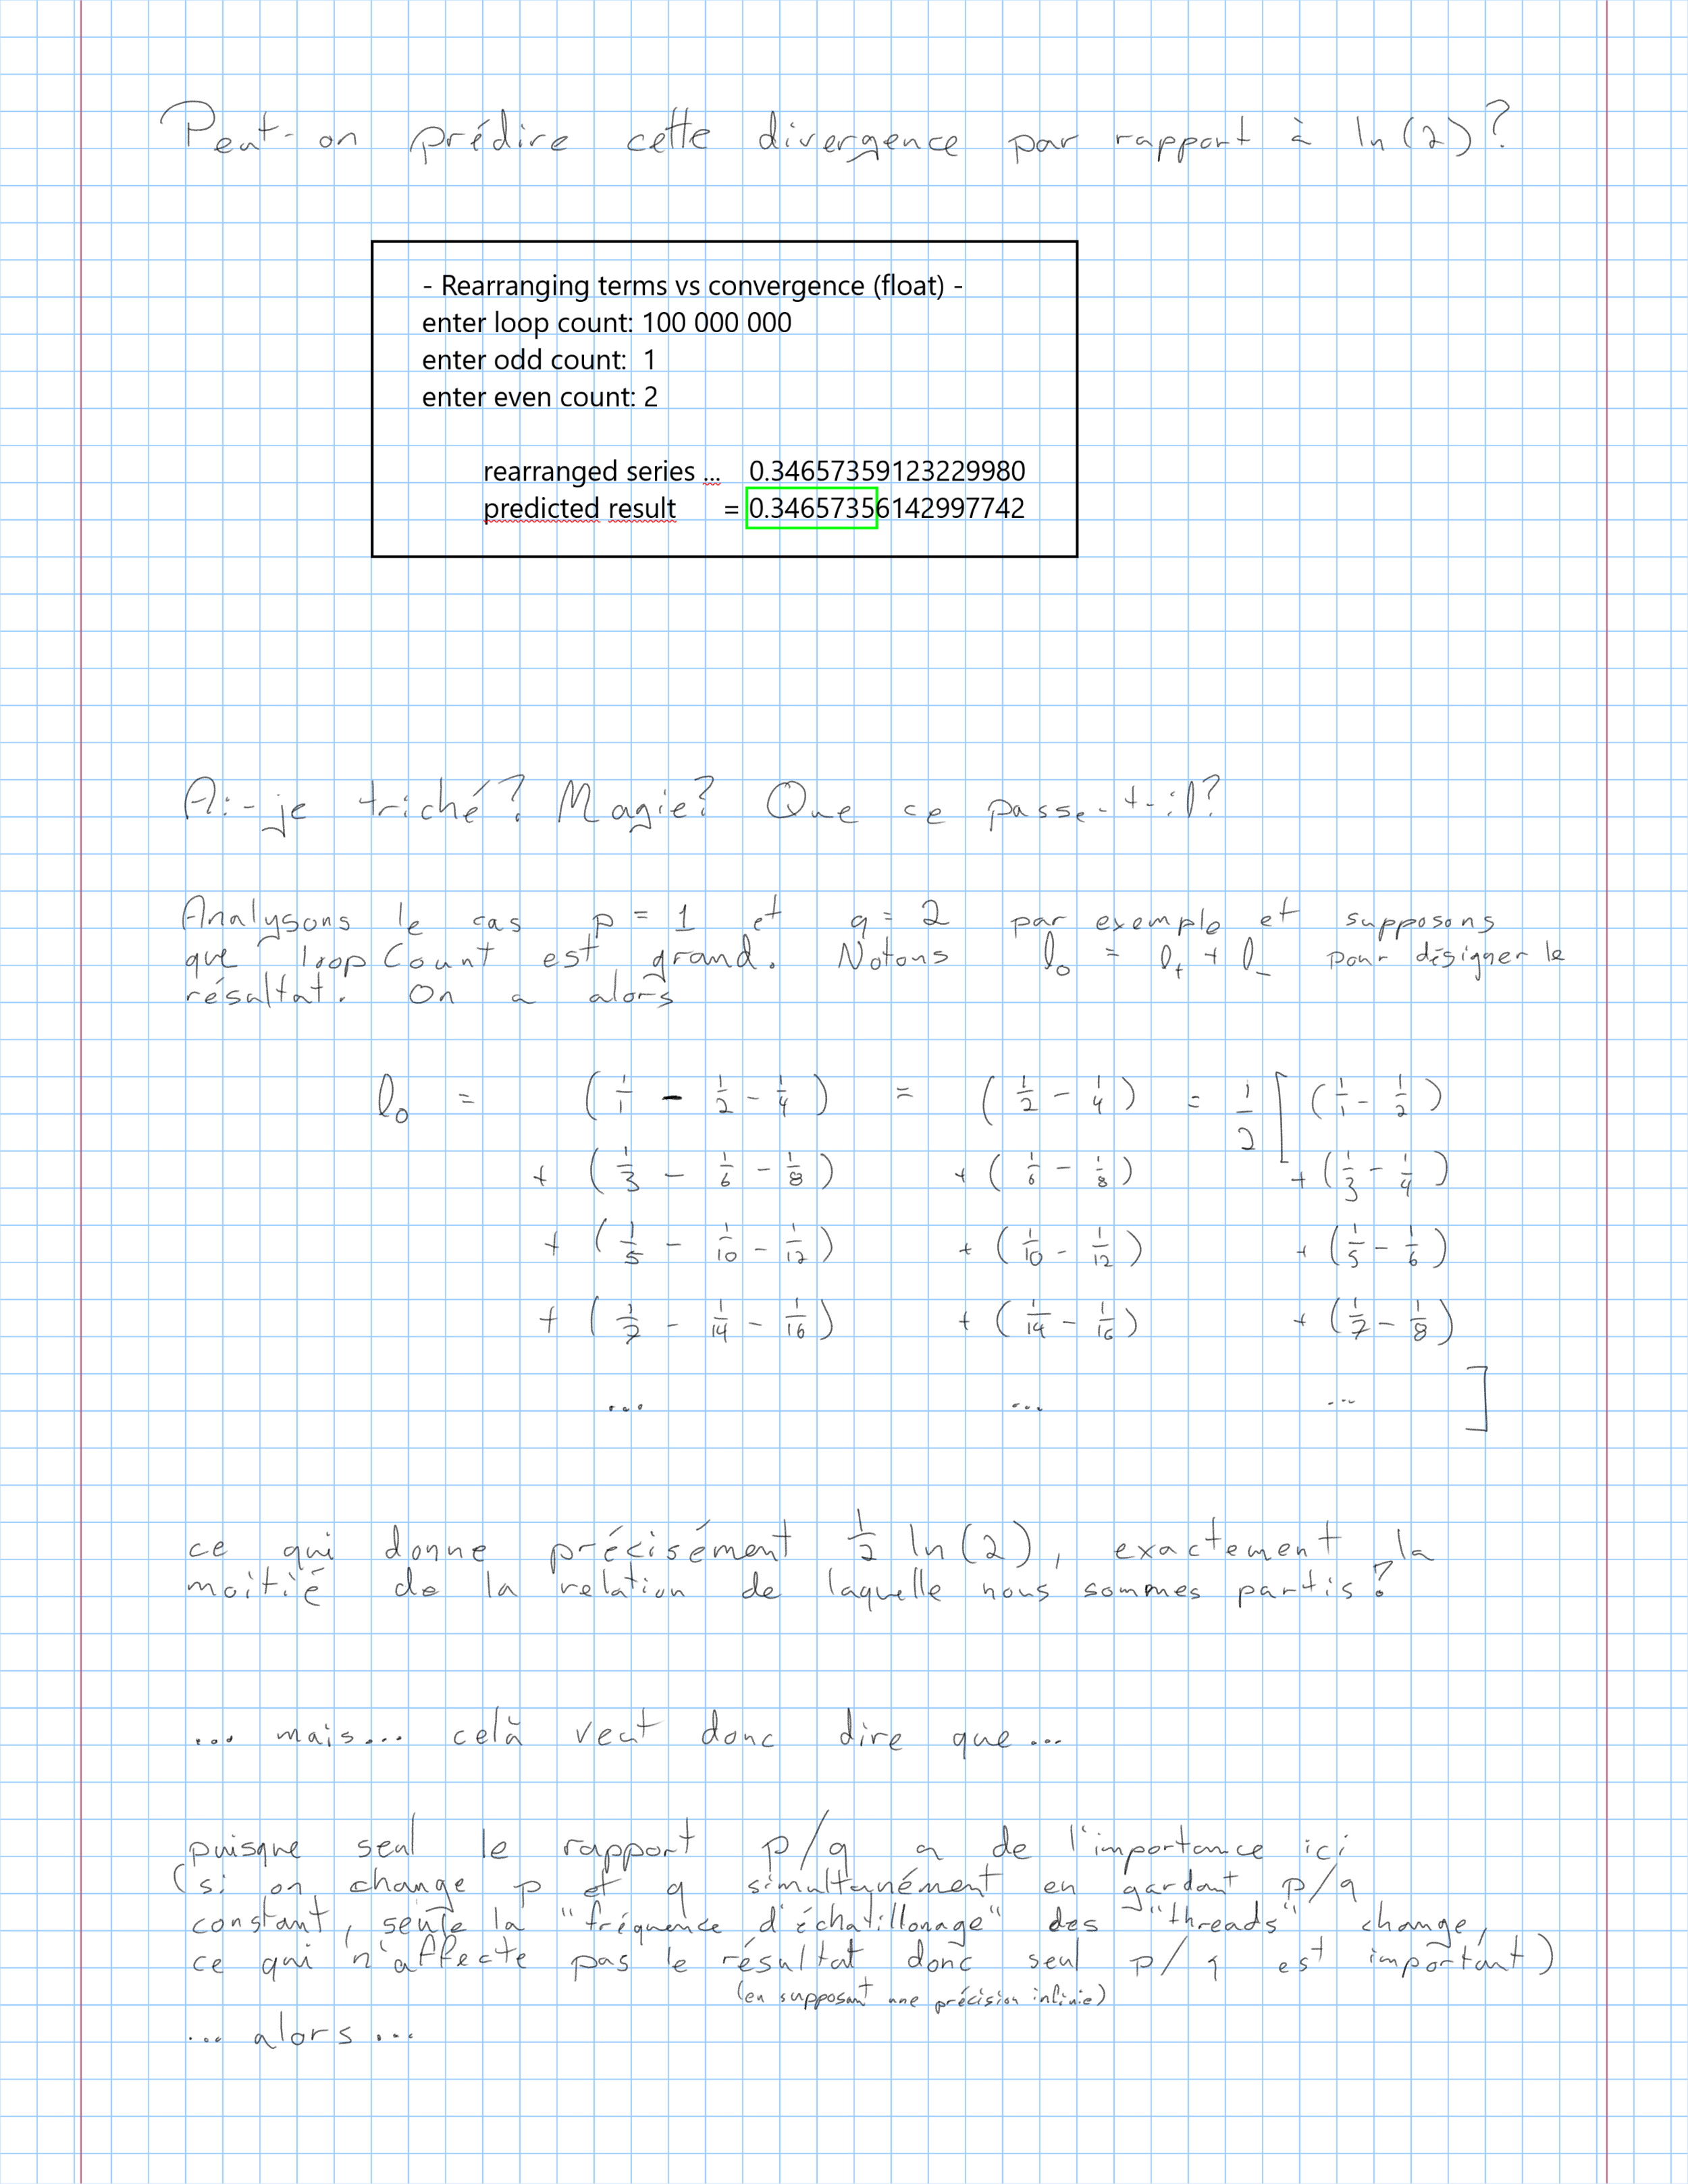 Peut-on prédire cette divergence par rapport à ln(2)?
- Rearranging terms vs convergence (float) -
enter loop count: 100 000 000
enter odd count: 1
enter even count: 2
rearranged series ... 0.34657359123229980
predicted result = 0.34657356142997742
Ai-je triché? Magie? Que ce passe-t-il?
Analysons le cas p = 1 et q = 2 par exemple et supposons
que loopCount est grand. Notons l₀ = l₊ + l₋ pour désigner le
résultat. On a alors
l₀ = (1/1 - 1/2 - 1/4) = (1/2 - 1/4) = 1/2 [ (1/1 - 1/2)
+ (1/3 - 1/6 - 1/8) + (1/6 - 1/8) + (1/3 - 1/4)
+ (1/5 - 1/10 - 1/12) + (1/10 - 1/12) + (1/5 - 1/6)
+ (1/7 - 1/14 - 1/16) + (1/14 - 1/16) + (1/7 - 1/8)
... ... ... ]
ce qui donne précisément 1/2 ln(2), exactement la
moitié de la relation de laquelle nous sommes partis?
... mais... celà veut donc dire que...
puisque seul le rapport p/q a de l'importance ici
(si on change p et q simultanément en gardant p/q
constant, seule la "fréquence d'échatillonage" des "threads" change,
ce qui n'affecte pas le résultat donc seul p/q est important)
(en supposant une précision infinie)
... alors...